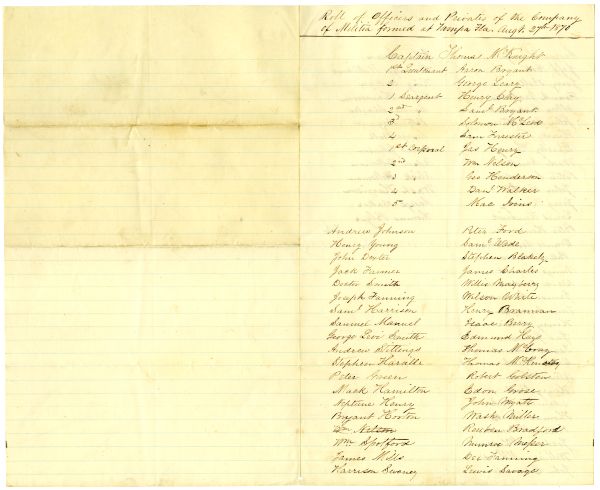 Roll of Officers and Privates of the Company
of Militia formed at Tampa Fla. Augt. 27th 1870
Captain Thomas McKnight
1st Lieutenant Aron Bryant
2 " George Leary
1 Seargent Henry Clay
2nd " Saml. Bryant
3 " Solomon McLeod
4 " Sam
1st Corporal Jas Henry
2nd " Wm Nelson
3 " Geo Henderson
4 Danl. Walker
5 Mac Joins
Andrew Johnson Peter Ford
Henry Young Saml. Wade
John Dexter Stephen Blakely
Jack Farmer James Charles
Doctor Smith Willis Mayberry
Joseph Fanning Wilson White
Saml. Harrison Henry Brannan
Samuel Manuel Isaac Berry
George Levi Smith Edmund Hays
Andrew Thomas McCray
Stephen Thomas
Peter Green Robert
Mack Hamilton Edon Grose
Neptune Henry John Myatt
Bryant Horton Wash Miller
Wm Nelson Reuben Bradford
Wm. Spotford Munroe
James Mills Dor Fanning
Harrison Swaney Lewis Savage